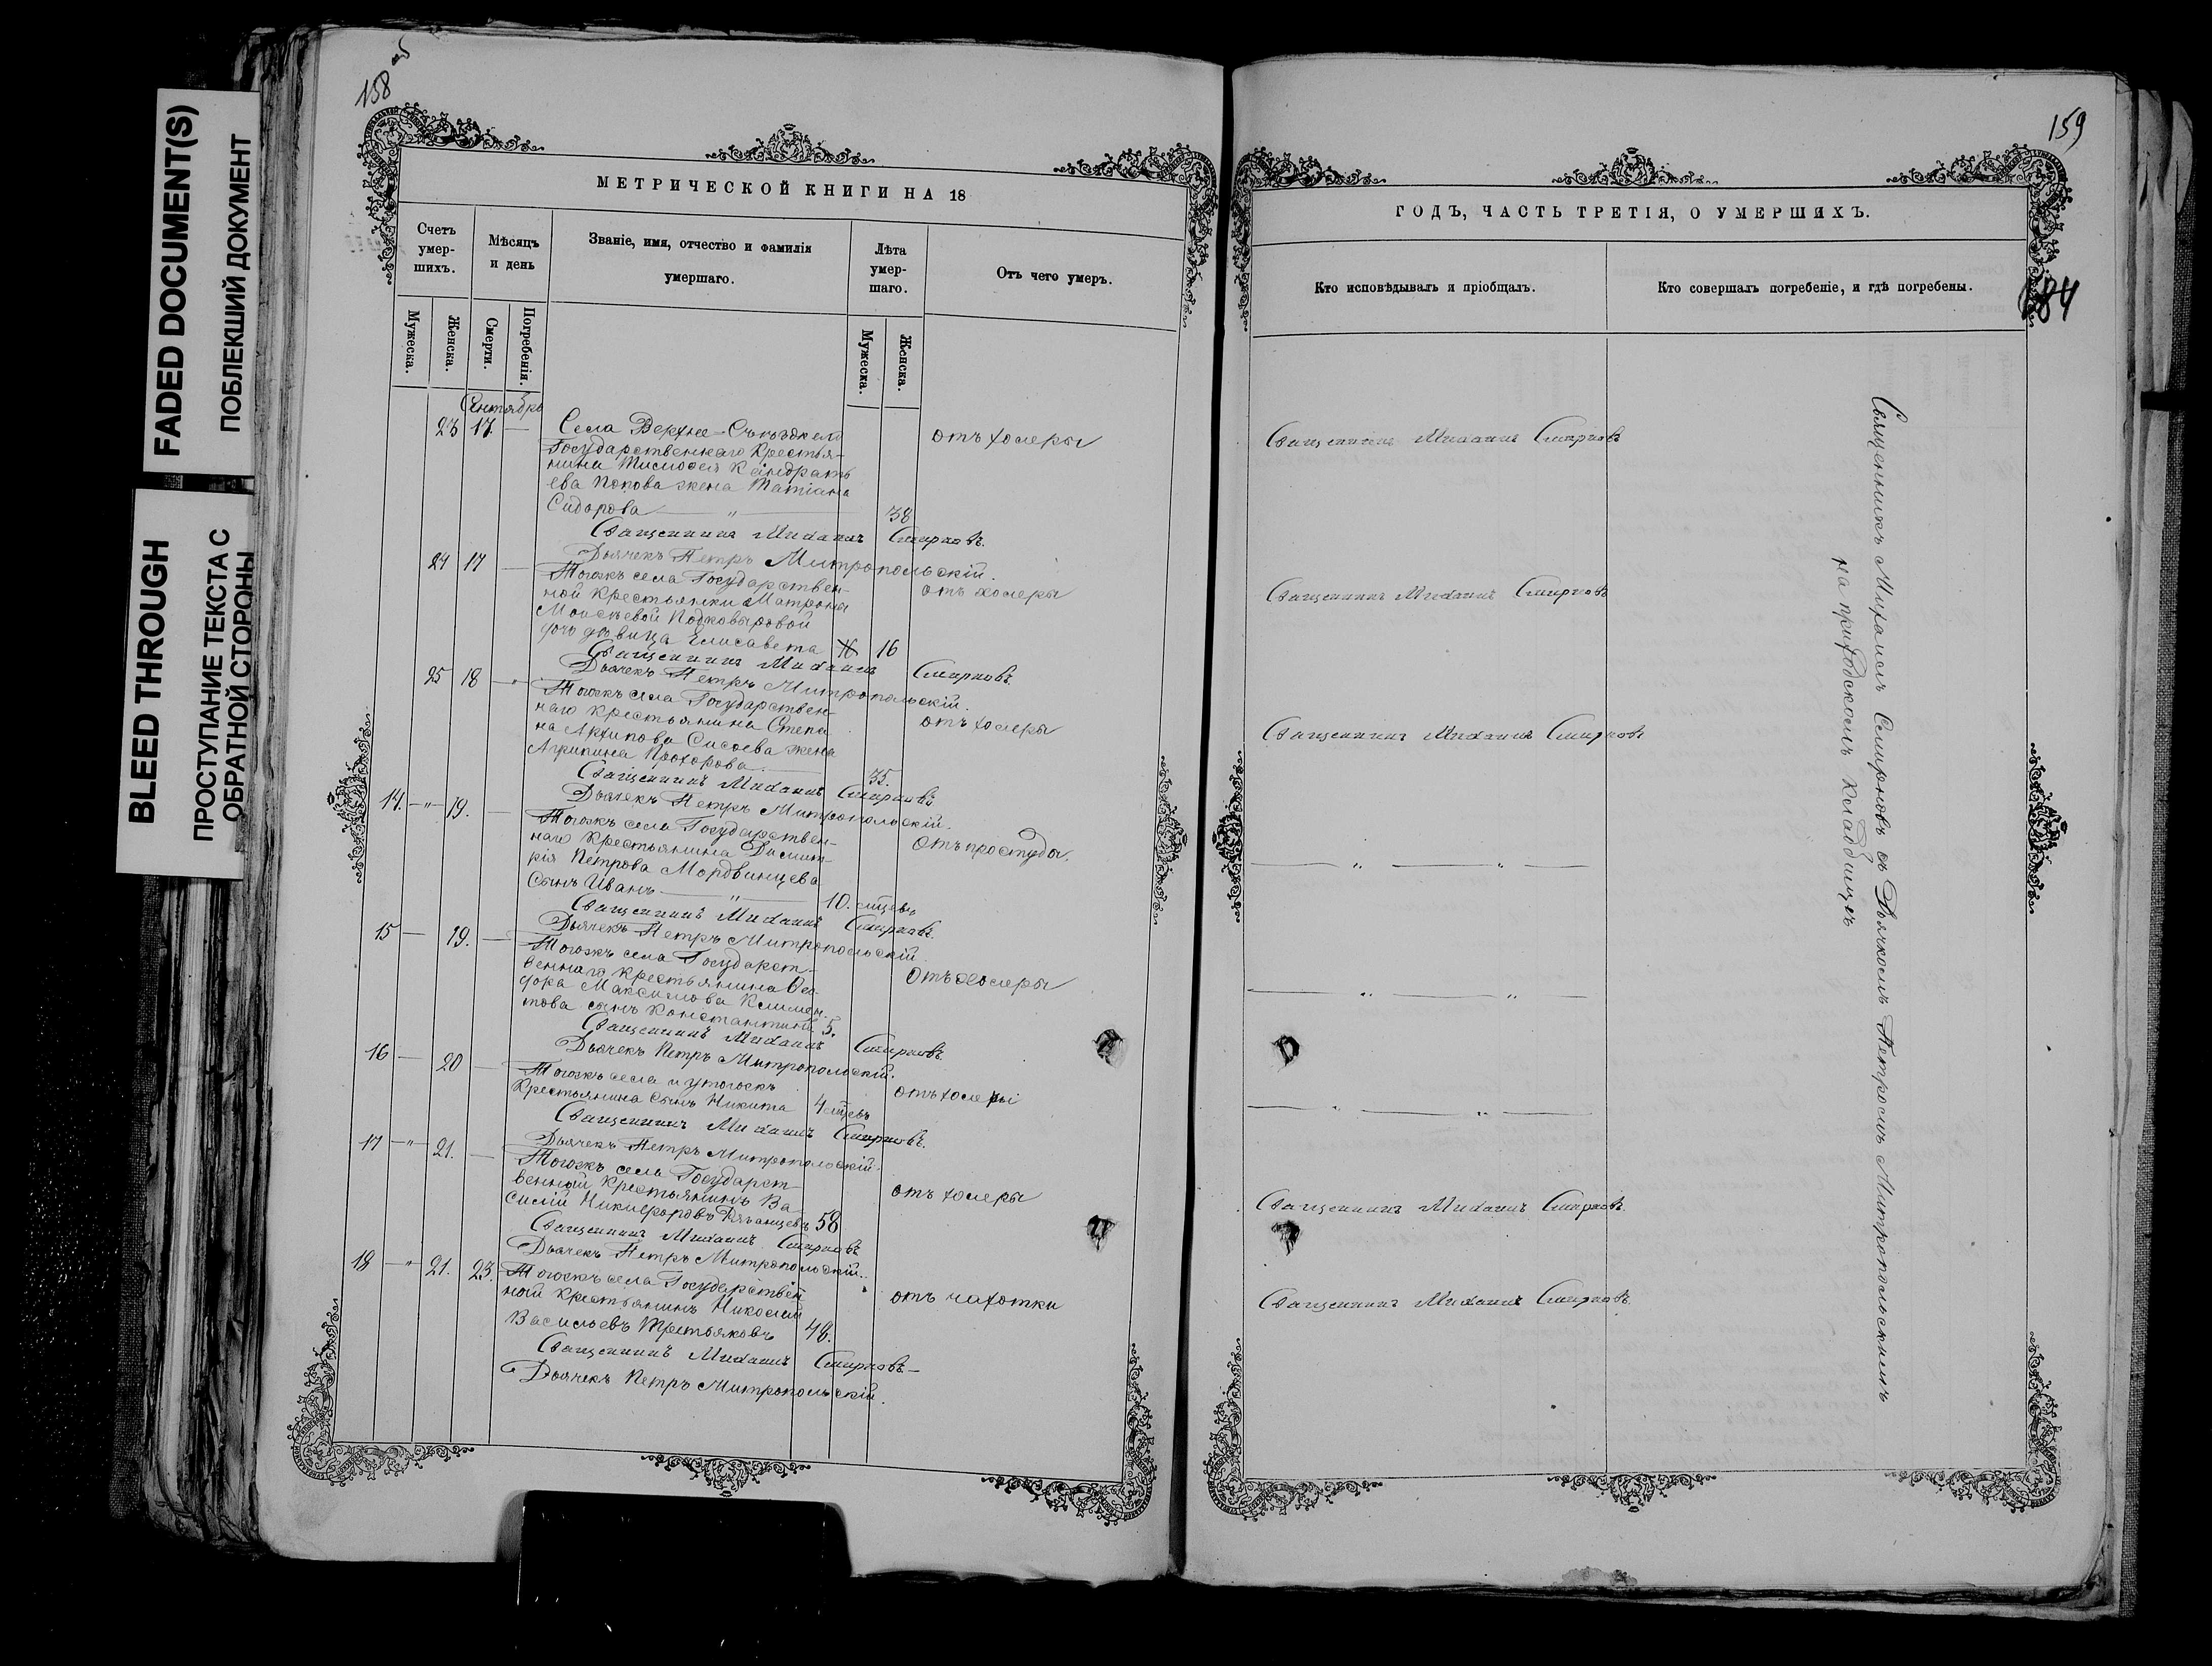 FADED DOCUMENT(S)
ПОБЛЕКШИЙ ДОКУМЕНТ
BLEED THROUGH
ПРОСТУПАНИЕ ТЕКСТА С
ОБРАТНОЙ СТОРОНЫ
158 об
МЕТРИЧЕСКОЙ КНИГИ НА 18
Счетъ умер-шихъ.
Мѣсяцъ и день
Званіе, имя, отчество и фамилія умершаго.
Лѣта умер-шаго.
Отъ чего умеръ.
Мужеска.
Женска.
Смерти.
Погребенія.
Мужеска.
Женска.
Сентябрь
23 17. — Села Верхнее-
Государственнаго Крестья-
нина Тимофея Кондрать
ева Попова жена Татіана
Сидорова — " — 38 отъ холеры
Священникъ Михаилъ Смирновъ.
Дьячекъ Петръ Митропольскій.
24 17 — Тогожъ села Государствен-
ной крестьянки Матроны
Моисѣевой Подковыровой
дочь дѣвица Елисавета 16 16 отъ холеры
Священникъ Михаилъ Смирновъ.
Дьячекъ Петръ Митропольскій.
25 18 — " Тогожъ села Государствен-
наго крестьянина Степа
на Архипова Сысоева жена
Агрипина Прохорова — 35. отъ холеры
Священникъ Михаилъ Смирновъ
Дьячекъ Петръ Митропольскій.
14. — " — 19. — Тогожъ села Государствен-
наго Крестьянина Димит-
рія Петрова Мордвинцева
Сынъ Иванъ — " — 10. отъ простуды.
Священникъ Михаилъ Смирновъ.
Дьячекъ Петръ Митропольскій.
15 — 19. — Тогожъ села Государст-
веннаго крестьянина Ѳео
дора Максимова Климен-
това сынъ Константинъ. 5. Отъ холеры
Священникъ Михаилъ Смирновъ.
Дьячекъ Петръ Митропольскій.
16 — 20 — Тогожъ села и утогожъ
Крестьянина сынъ Никита 4 отъ холеры
Священникъ Михаилъ Смирновъ.
Дьячекъ Петръ Митропольскій.
17 — " — 21. — Тогожъ села Государст-
венный крестьянинъ Ва-
силій Никифоровъ Рязанцевъ 58 отъ холеры
Священникъ Михаилъ Смирновъ
Дьячекъ Петръ Митропольскій.
18 — " — 21. 23. Тогожъ села Государствен
ный крестьянинъ Николай
Васильевъ Третьяковъ 48. отъ чахотки
Священникъ Михаилъ Смирновъ —
Дьячекъ Петръ Митропольскій.
159
ГОДЪ, ЧАСТЬ ТРЕТІЯ, О УМЕРШИХЪ.
184
Кто исповѣдывалъ и пріобщалъ.
Кто совершалъ погребеніе, и гдѣ погребены.
Священникъ Михаилъ Смирновъ
Священникъ Михаилъ Смирновъ
Священникъ Михаилъ Смирновъ
— " — " —
— " — " —
— " — " —
Священникъ Михаилъ Смирновъ.
Священникъ Михаилъ Смирновъ.
Священникъ Михаилъ Смирновъ съ Дьячкомъ Петромъ Митропольскимъ
на приходскомъ кладбищѣ